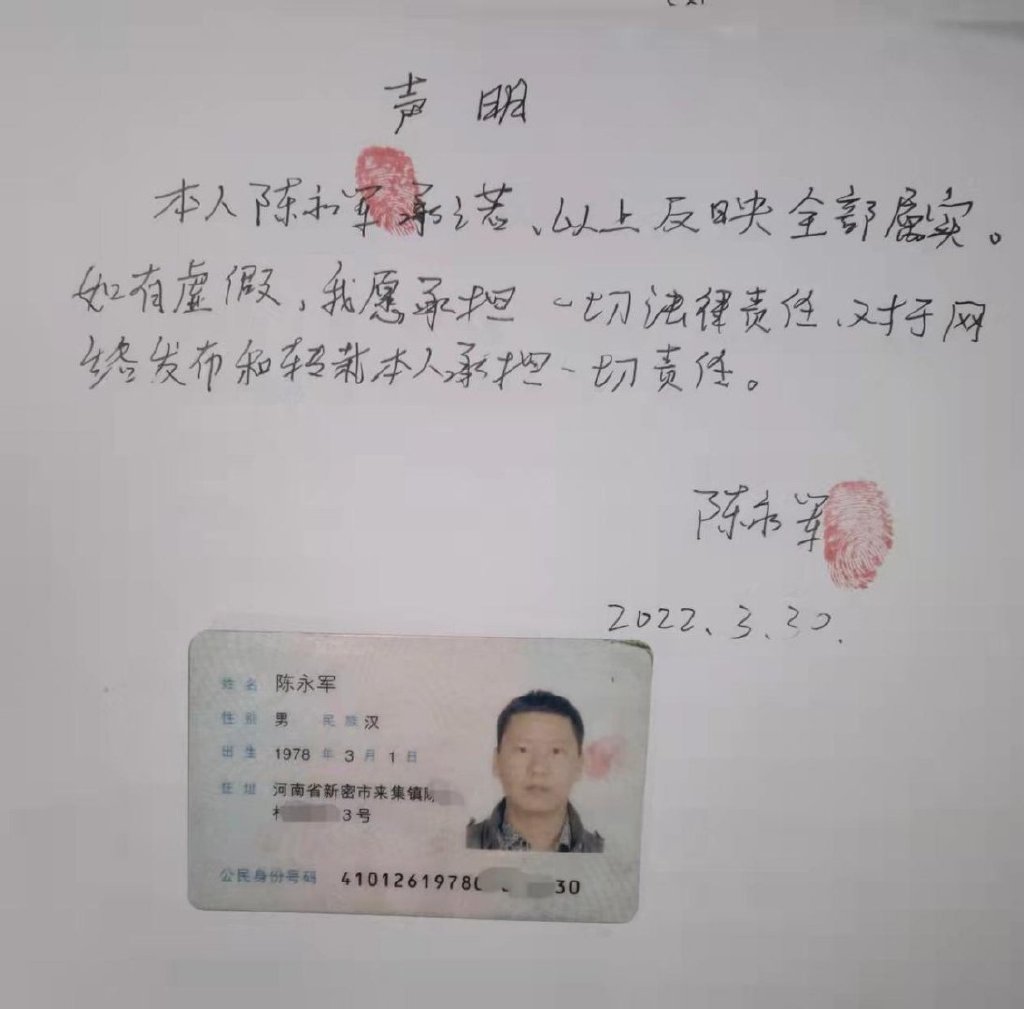 声 明
本人陈永军承诺、以上反映全部属实。
如有虚假,我愿承担一切法律责任、对于网
络发布和转载本人承担一切责任。
陈永军
2022.3.20.
姓名 陈永军
性别 男 民族 汉
出生 1978 年 3 月 1 日
住址 河南省新密市来集镇
3号
公民身份号码 4101261978 30